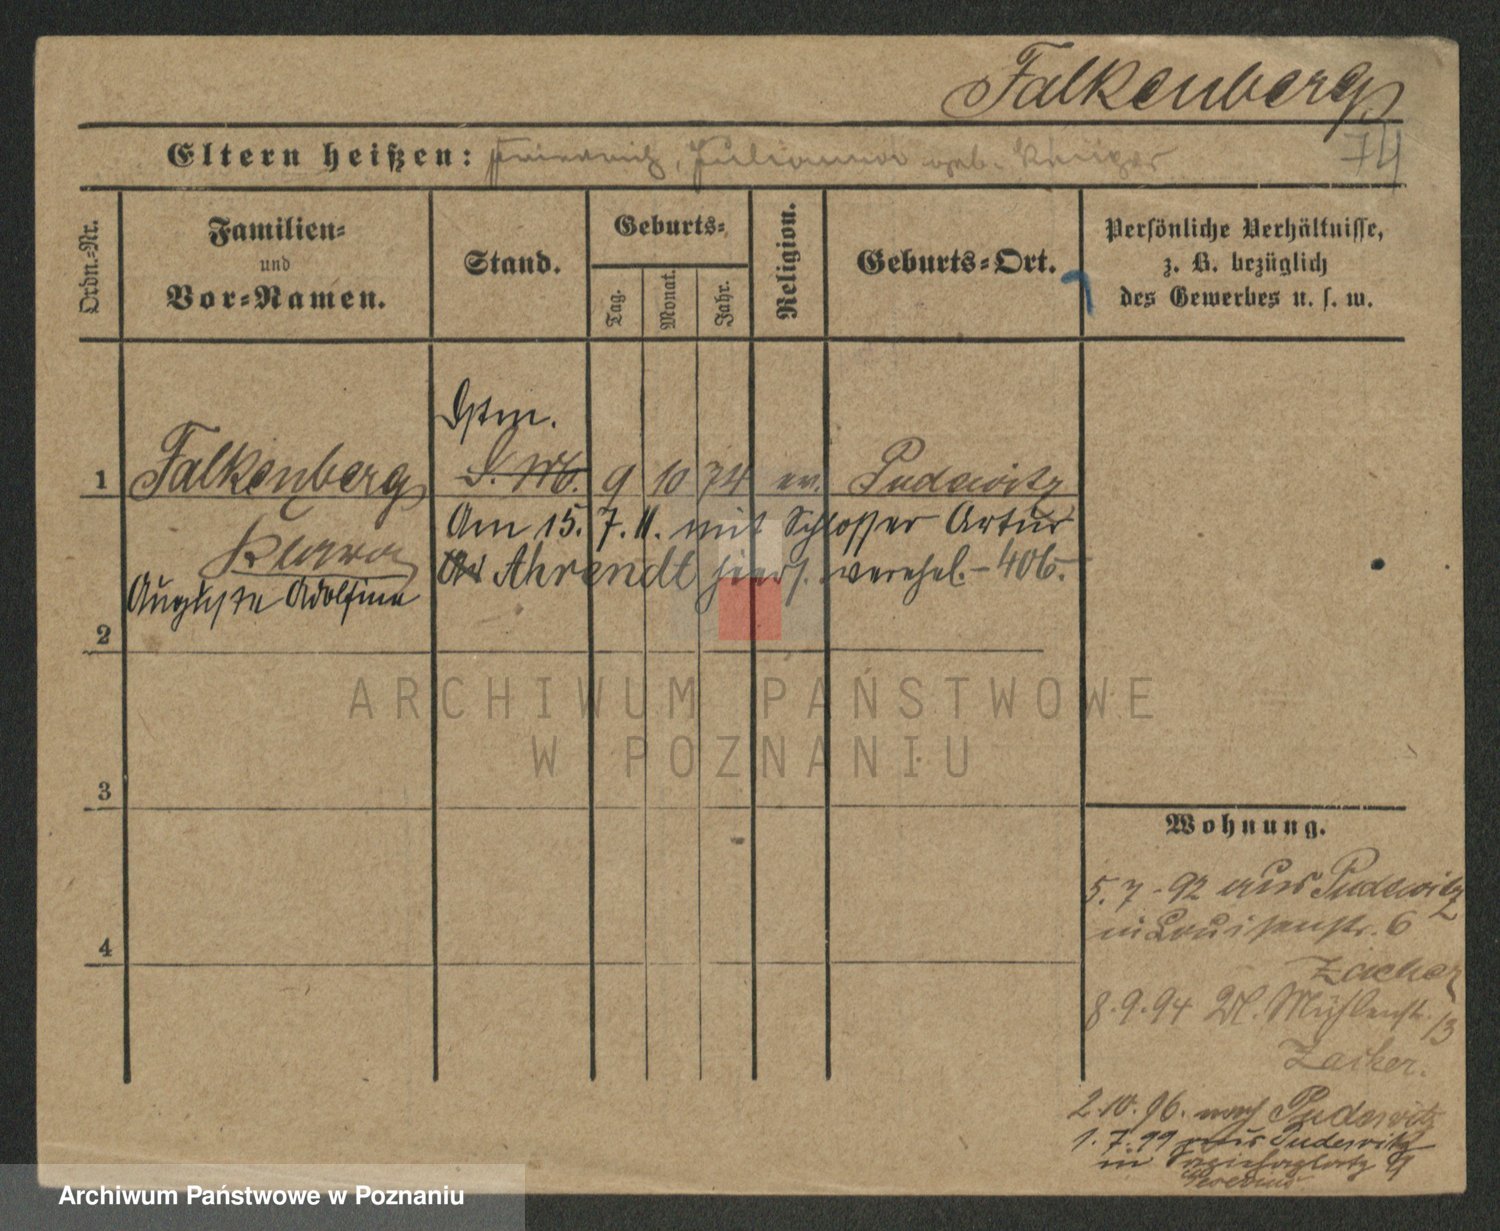 Falkenberg
74
Eltern heißen: Friedrich, Julianna geb. Krüger
Ordn.-Nr.
Familien- und Vor-Namen.
Stand.
Geburts-
Tag.
Monat.
Jahr.
Religion.
Geburts-Ort.
Persönliche Verhältnisse,
z. B. bezüglich
des Gewerbes u. s. w.
1 Falkenberg
Klara
Auguste Adolfine
9 10 74 ev. Pudewitz
Am 15. 7. 11. mit Schlosser Artur
Ahrendt hiers. verehel. - 406.
2
3
4
ARCHIWUM PAŃSTWOWE
W POZNANIU
Wohnung.
5.7.92 aus Pudewitz
in Louisenstr. 6
Zacher
8.9.94 Mühlenstr. 13
Zacher.
2.10.96. nach Pudewitz
1.7.99 aus Pudewitz
in
Archiwum Państwowe w Poznaniu